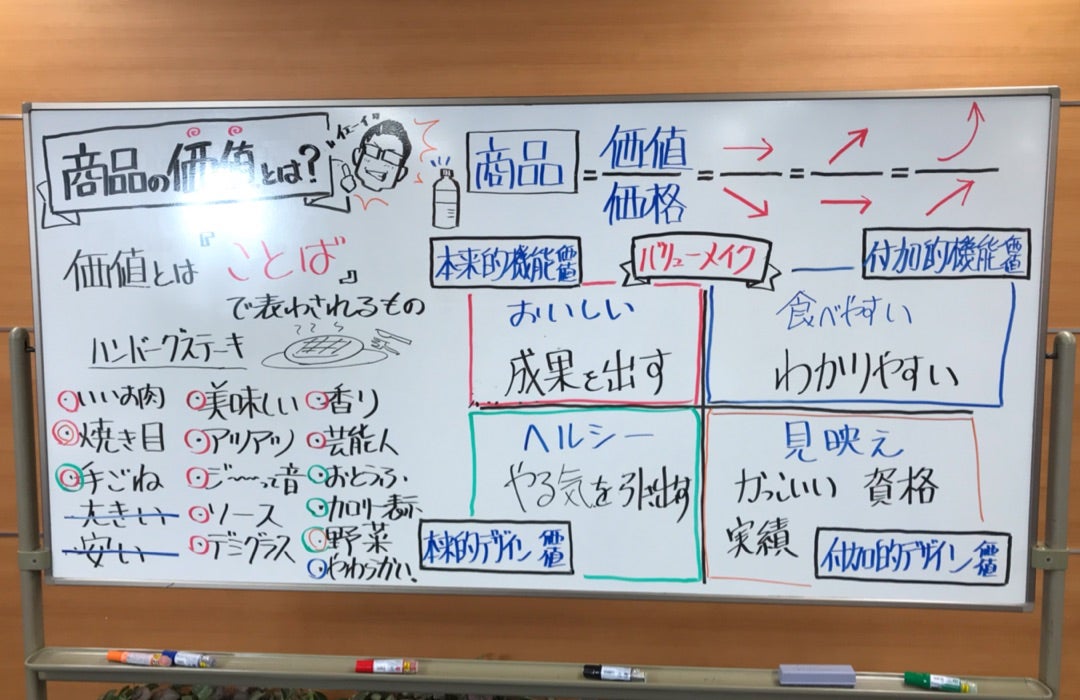 商品の価値とは?
イェーイ!!
価値とは『ことば』
で表わされるもの
ハンバーグステーキ
いいお肉
焼き目
手ごね
大きい
安い
美味しい
アツアツ
ジ〜〜って音
ソース
デミグラス
香り
芸能人
おとうふ
カロリー表示
野菜
やわらかい
商品 = 価値/価格 = →/↘ = ↗/→ = ⤴/↗
本来的機能価値
バリューメイク
付加的機能価値
おいしい
成果を出す
食べやすい
わかりやすい
ヘルシー
やる気を引き出す
本来的デザイン価値
見映え
かっこいい 資格
実績
付加的デザイン価値